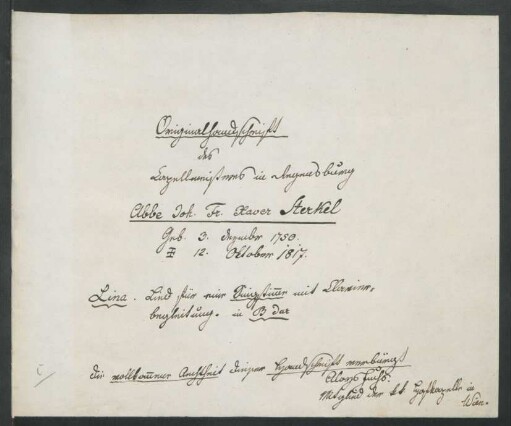 Originalhandschrift
des
Kapellmeisters in Regensburg
Abbe Joh. Fr. Xaver Sterkel
Geb. 3. Dezember 1750.
12. Oktober 1817.
Lina. Lied für eine Singstimme mit Clavier-
begleitung. in B dur
die vollkommene Aechtheit dieser Handschrift verbürgt
Aloys Fuchs.
Mitglied der kk Hofkapelle in
Wien.